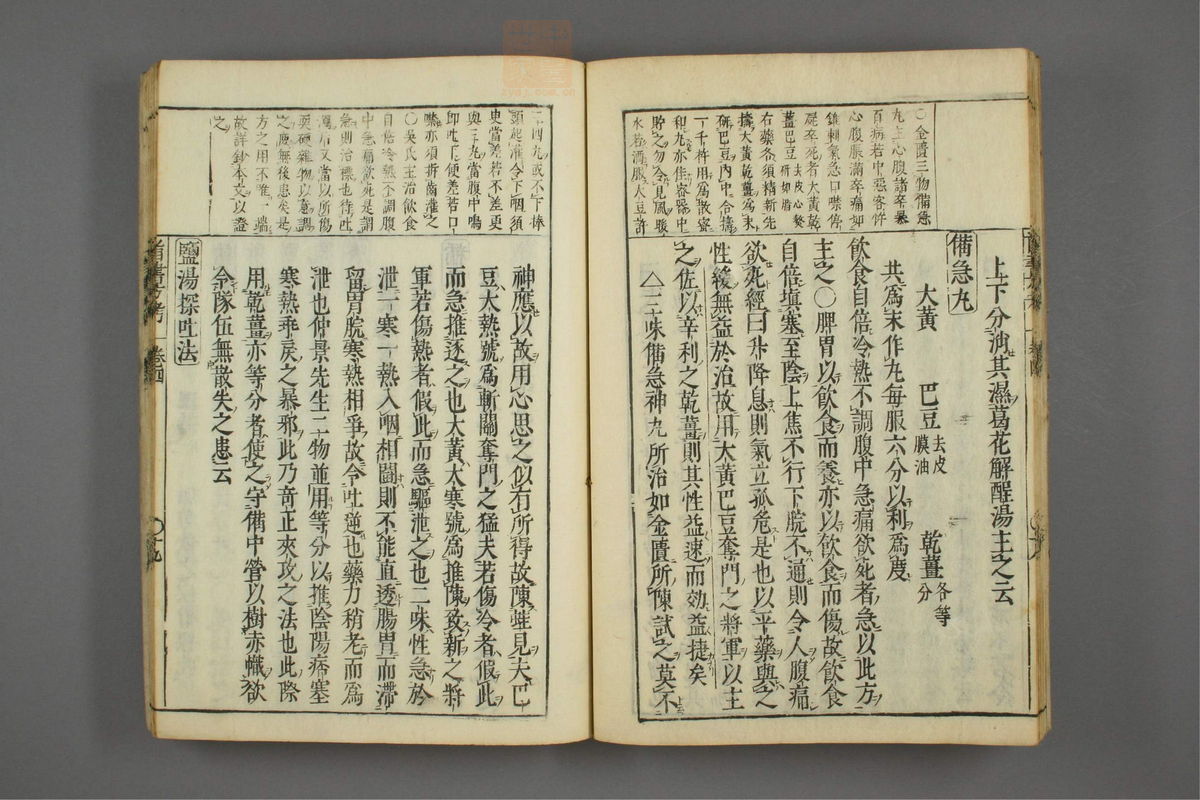 〇金匱三物備急
丸主心腹諸卒暴
百病若中惡客忤
心腹脹滿卒痛如
錐刺氣急口噤停
屍卒死者大黃乾
薑巴豆去皮心熬研如脂
右藥各須精新先
擣大黃乾薑爲末
研巴豆內中合擣
一千杵用爲散蜜
和丸亦佳密器中
貯之勿令見風
水若酒服大豆許
上下分消其濕葛花解酲湯主之云
備急丸
大黃 巴豆去皮膜油 乾薑各等分
共爲末作丸每服六分以利爲度
飲食自倍冷熱不調腹中急痛欲死者急以此方
主之〇脾胃以飲食而養亦以飲食而傷故飲食
自倍塡塞至陰上焦不行下脘不通則令人腹痛
欲死經曰升降息則氣立孤危是也以平藥與之
性緩無益於治故用大黃巴豆奪門之將軍以主
之佐以辛利之乾薑則其性益速而効益捷矣
△三味備急神丸所治如金匱所陳試之莫不
三四丸或不下捧
頭起灌令下咽須
臾當差若不差更
與三丸當腹中鳴
即吐下便差若口
噤亦須折齒灌之
〇吳氏主治飲食
自倍冷熱不調腹
中急痛欲死是謂
急則治標也待吐
瀉后又當以所傷
之應無後患矣是
方之用不唯一端
故詳鈔本文以證
之
神應以故用心思之似有所得故陳蛙見夫巴
豆大熱號爲斬關奪門之猛夫若傷冷者假此
而急推逐之也大黃大寒號爲推陳致新之將
軍若傷熱者假此而急驅泄之也二味性急於
泄一寒一熱入咽相鬪則不能直透腸胃而滯
留胃脘寒熱相爭故令吐逆也藥力稍老而爲
泄也仲景先生二物並用等分以推陰陽痞塞
寒熱乖戾之暴邪此乃竒正夾攻之法也此際
用乾薑亦等分者使之守備中營以樹赤幟欲
令隊伍無散失之患云
鹽湯探吐法